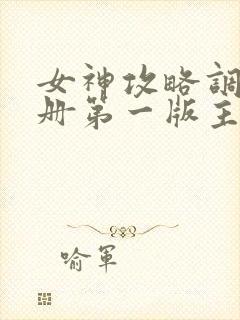 女神攻略調
册第一版主
喻軍